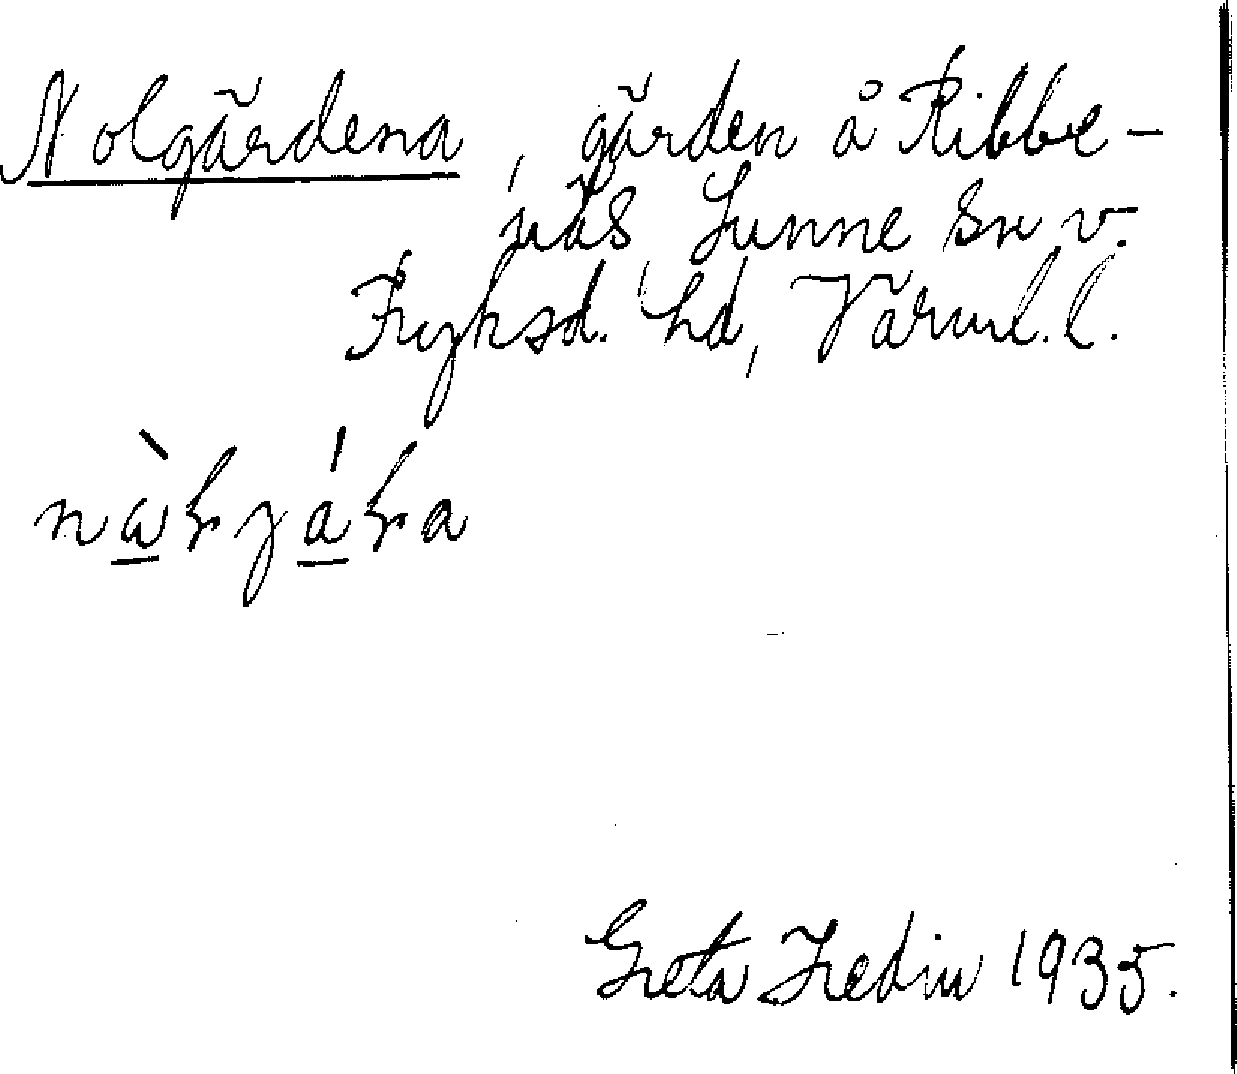 Nolgärdena, gärden å Ribbe-
näs, Sunne sn v.
Fryksd. hd, Värml. l.
Greta Hedin 1935.